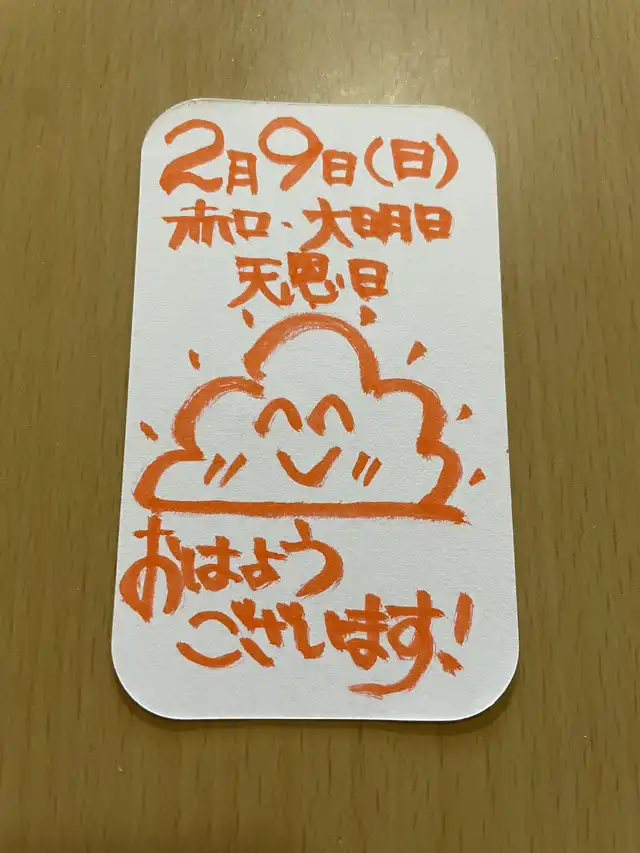 2月9日(日)
赤口・大明日
天恩日
おはよう
ございます!